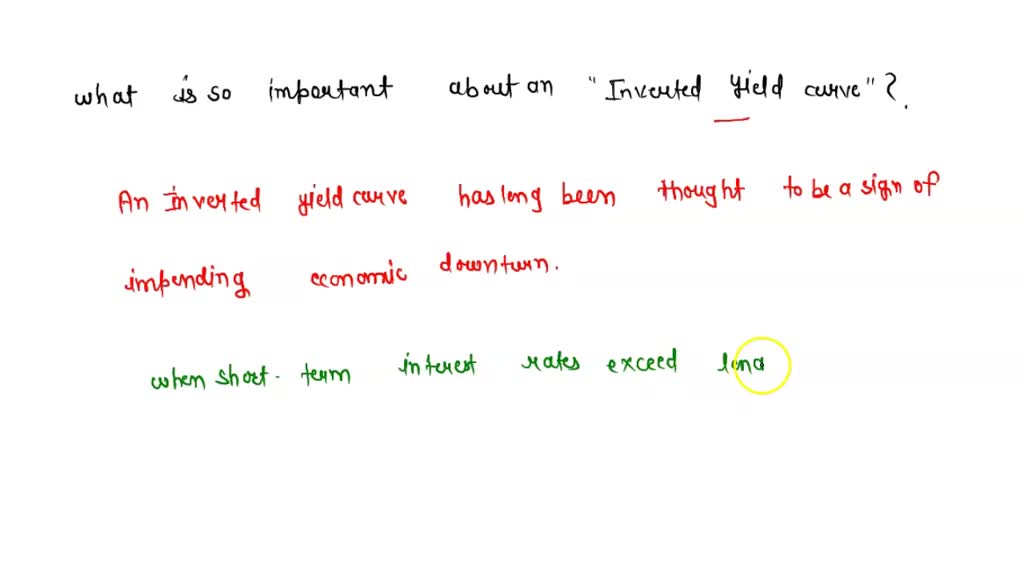 what is so important about an "Inverted yield curve"?.
An inverted yield curve has long been thought to be a sign of
impending economic downturn.
when short-term interest rates exceed long